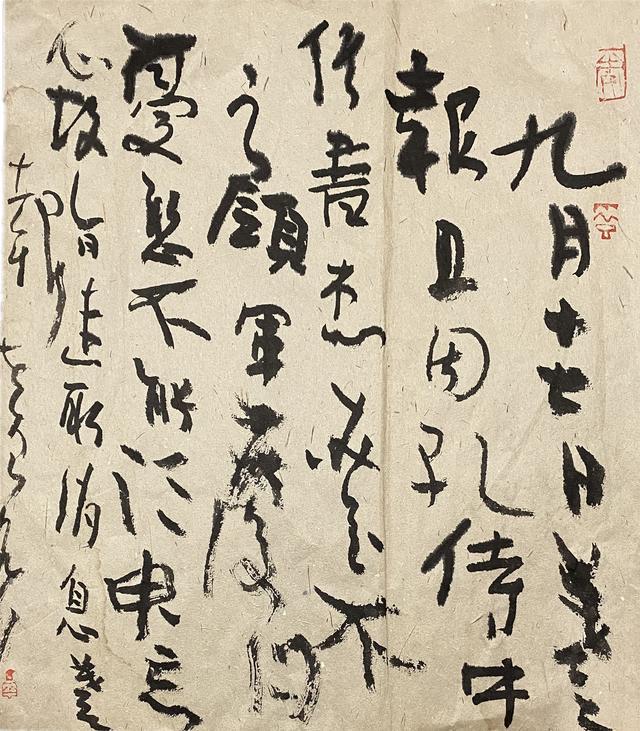 九月十七日羲之
報且因孔侍中
信書想必至不
知領軍疾後問
憂懸不能須臾忘
心故旨遣取消息羲之
報